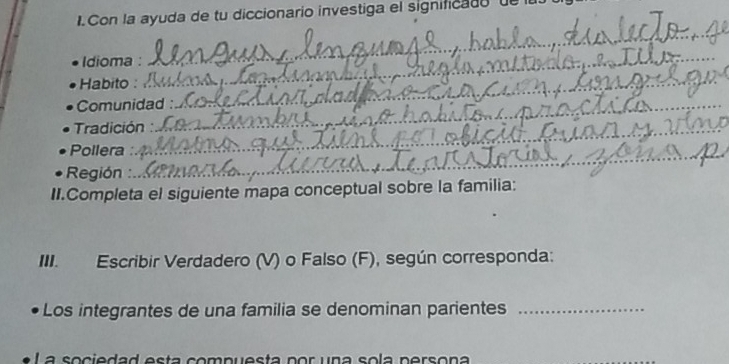 I. Con la ayuda de tu diccionario investiga el significado de las
• Idioma : lengua, lenguaje, habla, dialecto, ge
• Habito : Rutina, costumbre, regla, metodo, estilo
• Comunidad : colectividad, asociacion, congrega
• Tradición : costumbre, uso habito, practica
• Pollera : persona que tiene por oficio y
• Región : comarca, tierra, territorial, zona p
II.Completa el siguiente mapa conceptual sobre la familia:
III. Escribir Verdadero (V) o Falso (F), según corresponda:
• Los integrantes de una familia se denominan parientes
• La sociedad esta compuesta por una sola persona